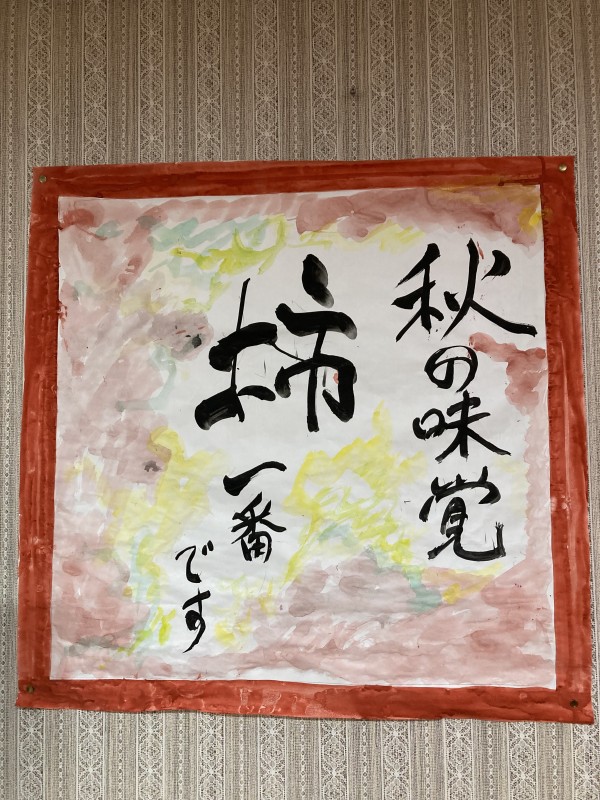 秋の味覚
柿一番
です